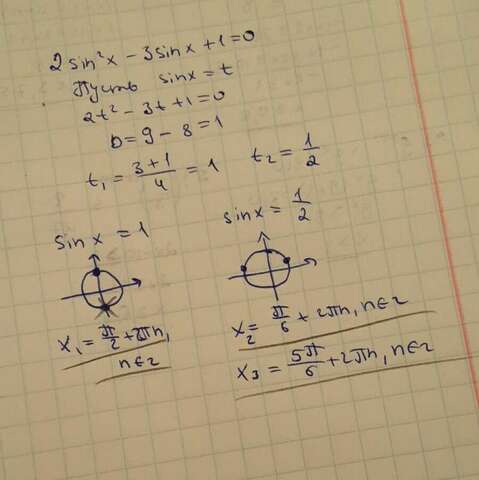 2sin²x - 3sinx + 1 = 0
Пусть sinx = t
2t² - 3t + 1 = 0
D = 9 - 8 = 1
t₁ = (3+1)/4 = 1   t₂ = 1/2
sinx = 1   sinx = 1/2
x₁ = π/2 + 2πn,
n∈z
x₂ = π/6 + 2πn, n∈z
x₃ = 5π/6 + 2πn, n∈z